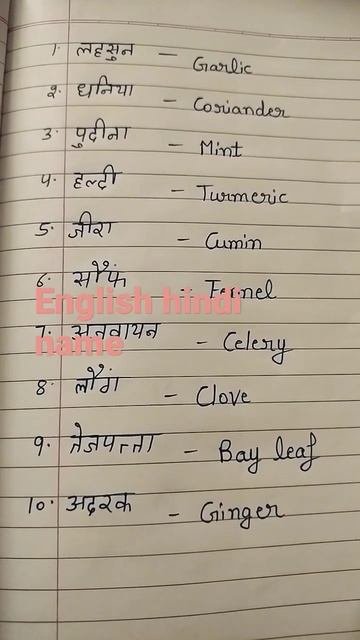 1. लहसुन - Garlic
2. धनिया - Coriander
3. पुदीना - Mint
4. हल्दी - Turmeric
5. जीरा - Cumin
6. सौंफ - Fennel
English hindi
7. अजवायन - Celery
name
8. लौंग - Clove
9. तेजपत्ता - Bay leaf
10. अदरक - Ginger